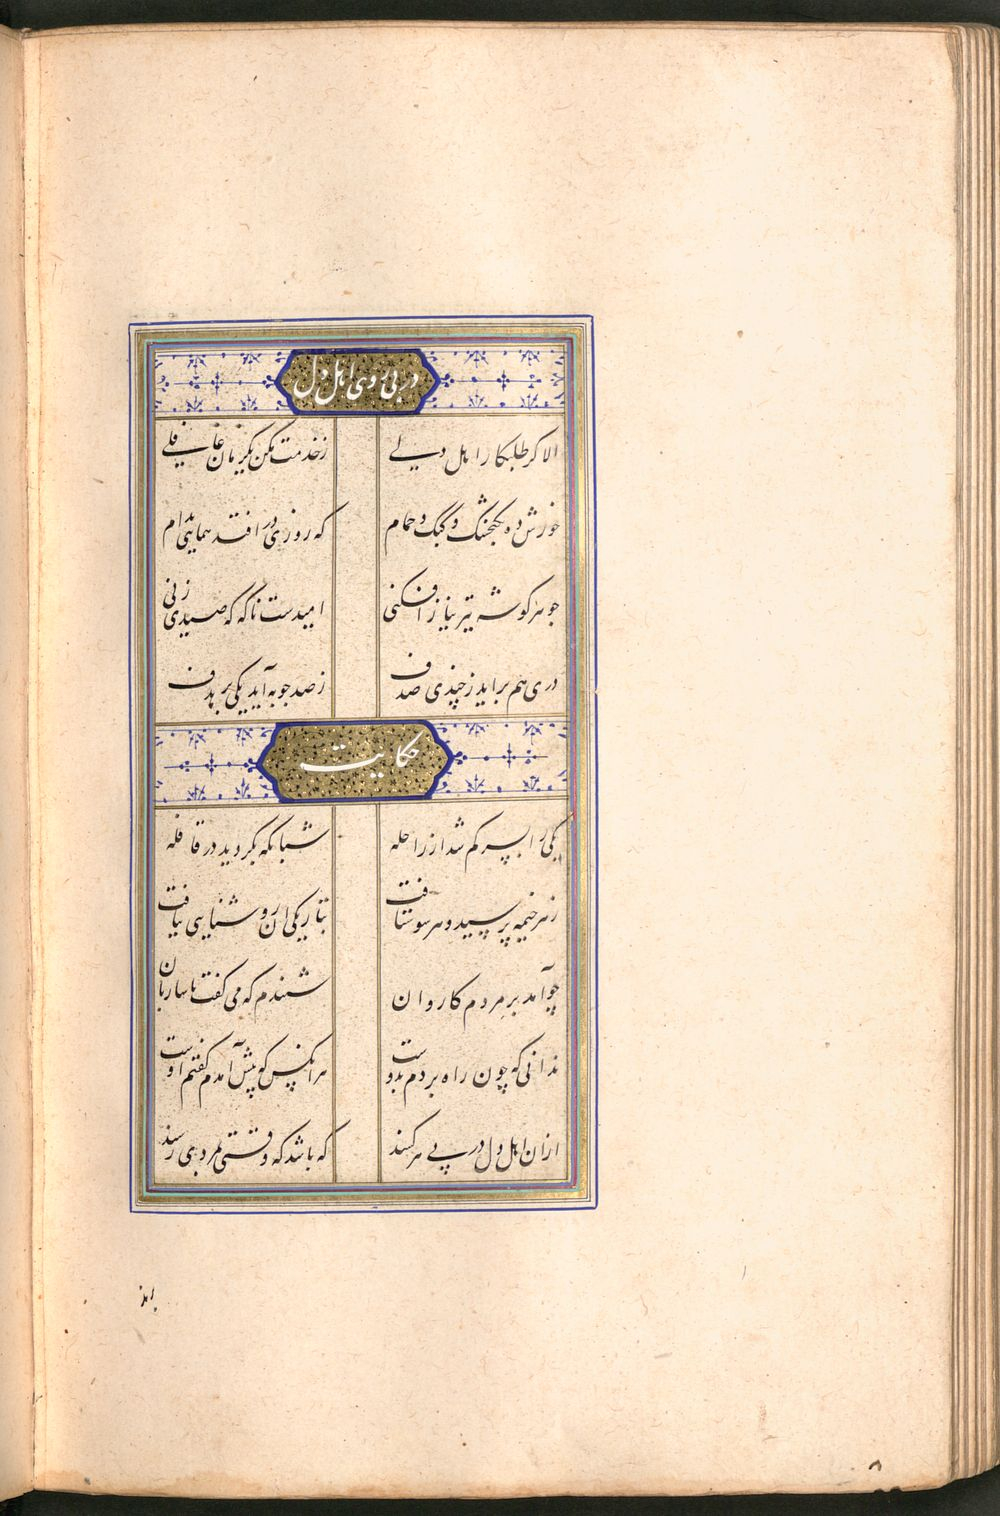 در پی روی اهل دل
الا کر طلبکار اهل دلی زخدمت مکن یکزمان غافلی
خورش ده بکنجشک و کبک و حمام که روزی در افتد همایی بدام
چو هر کوشه تیر نیاز افکنی امیدست ناکه که صیدی زنی
دری هم براید زچندی صدف زصد چوبه آید یکی بر هدف
حکایت
یکی را پسر کم شد از راحله شبانکه بکردید در قافله
زهر خیمه پرسید و هر سو شتافت بتاریکی ان روشنایی بیافت
چو آمد بر مردم کاروان شنیدم که می کفت با ساربان
ندانی که چون راه بردم بدوست هر انکس که پیش آمدم کفتم اوست
ازان اهل دل در پی هر کسند که باشد که وقتی بمردی رسند
برند